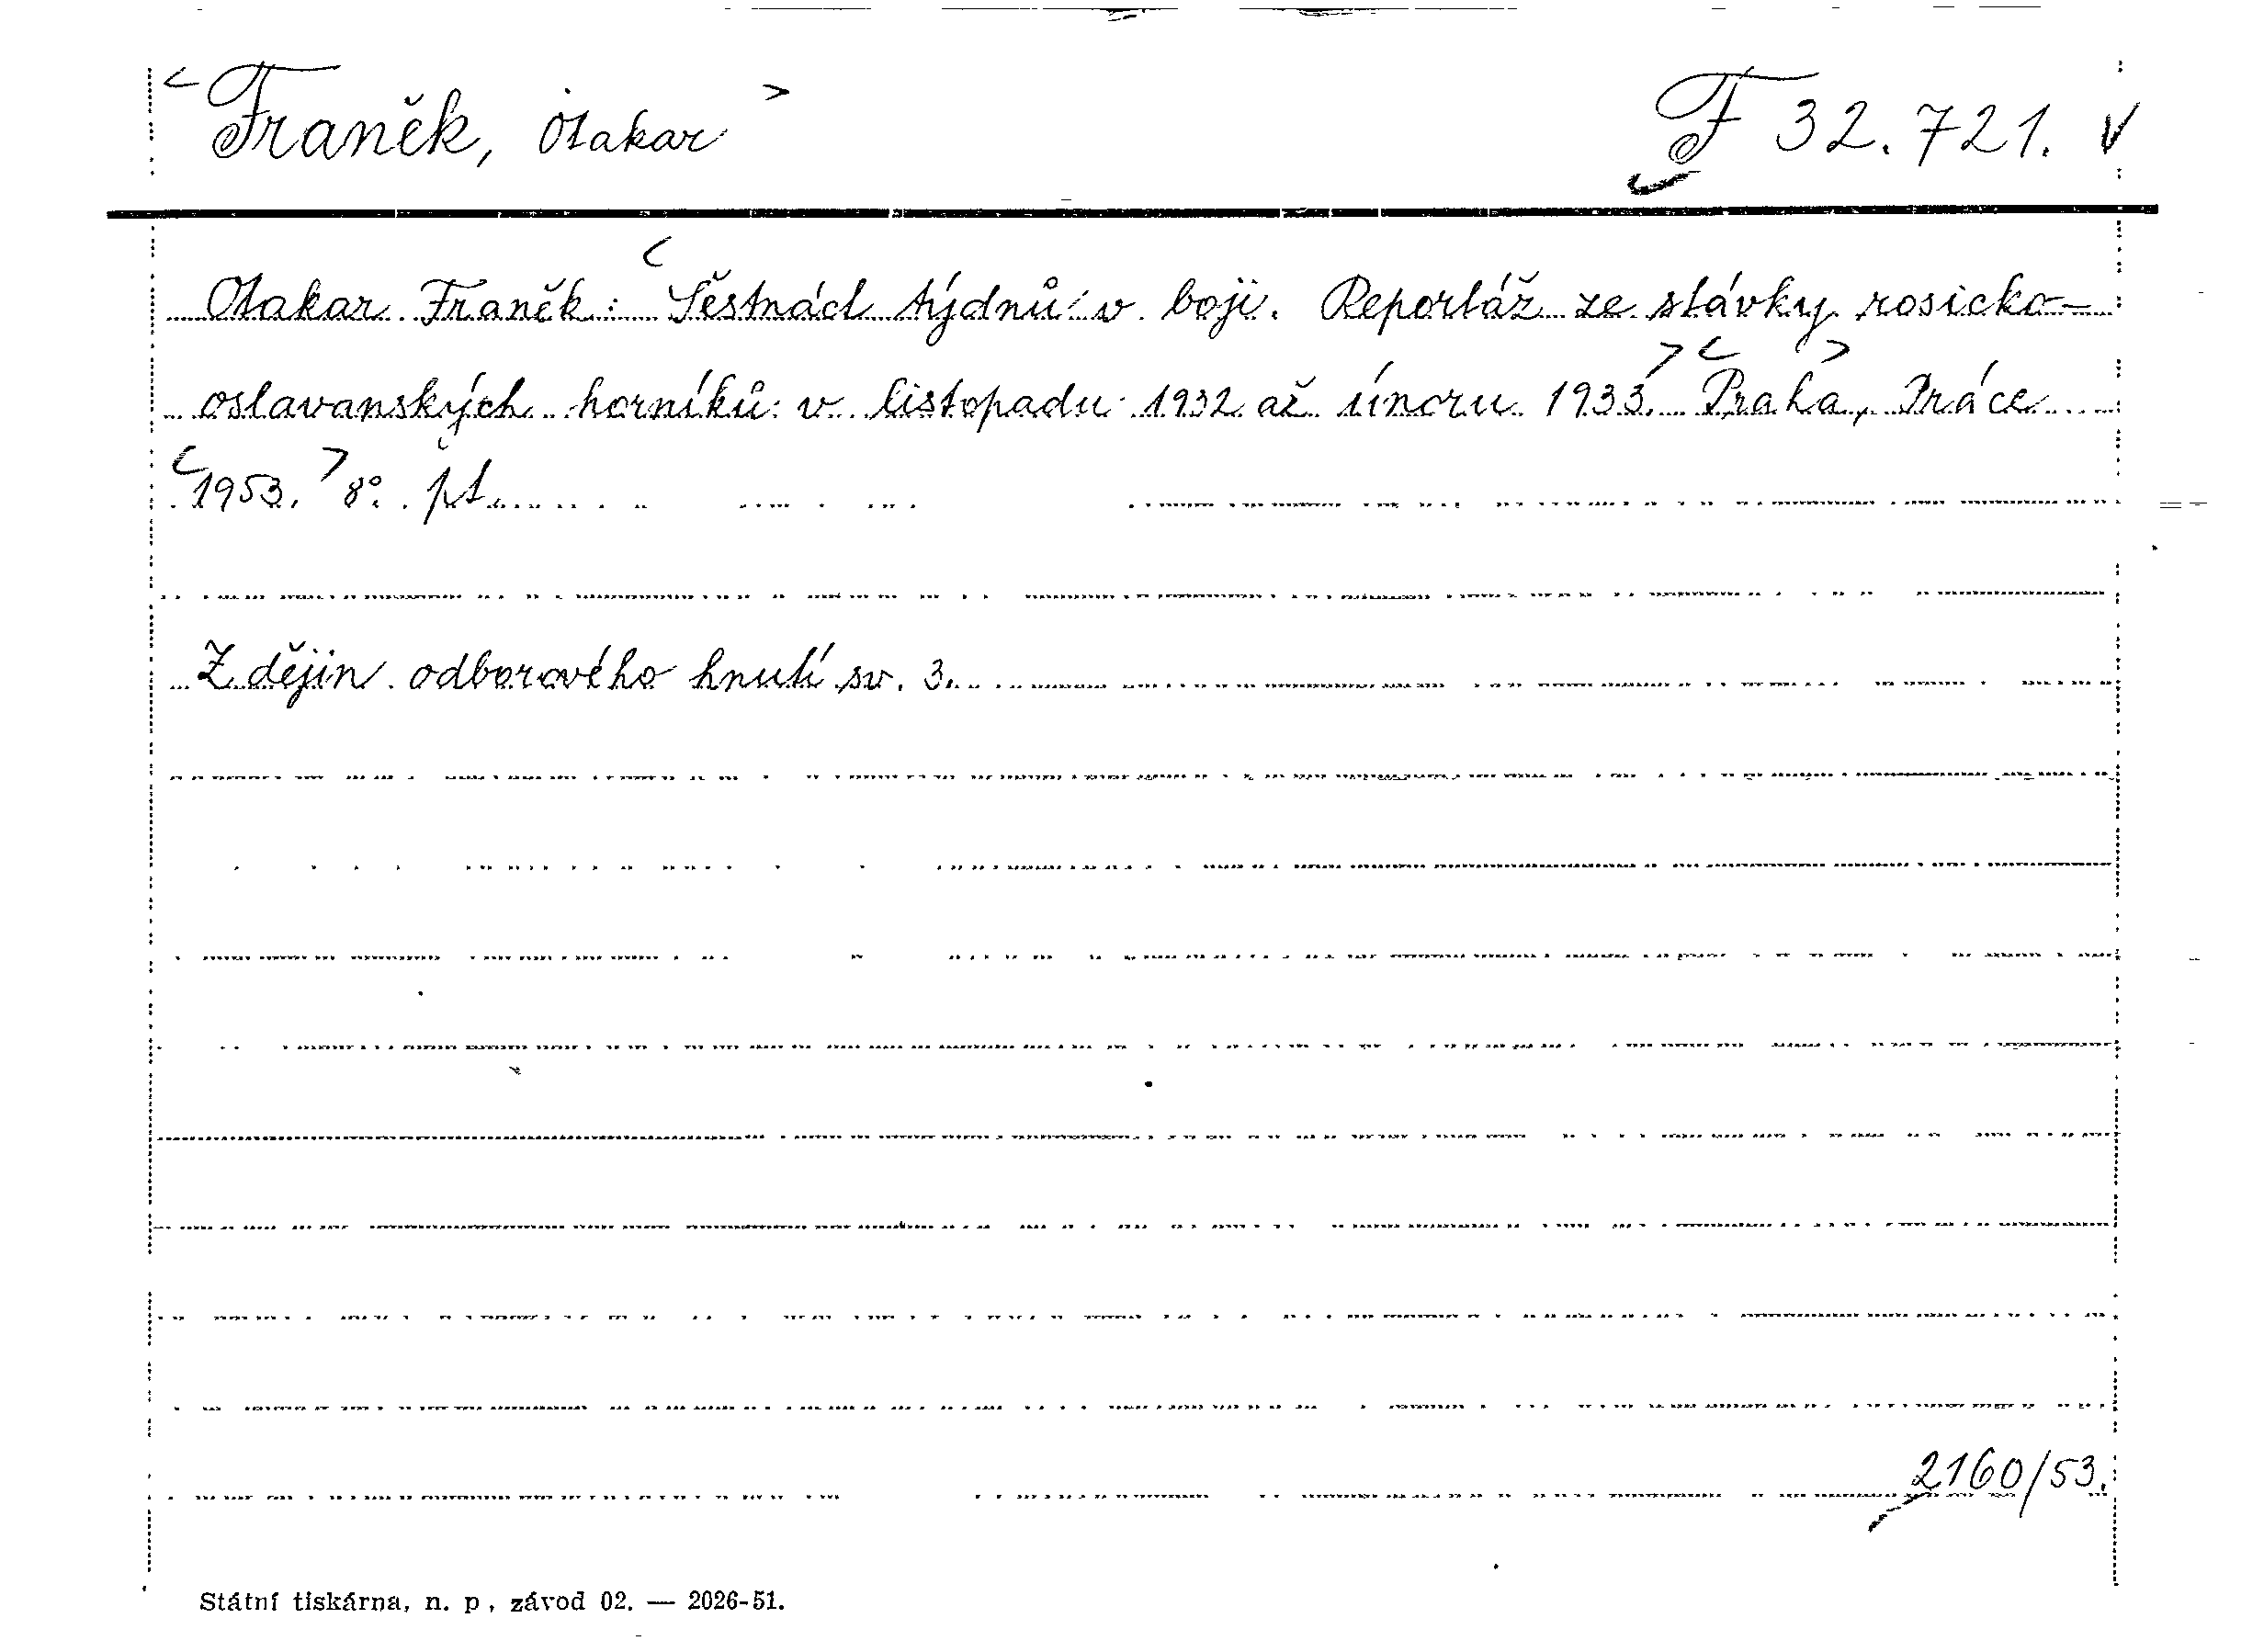 Franěk, Otakar F 32.721.
Otakar Franěk: Šestnáct týdnů v boji. Reportáž ze stávky rosicko-
oslavanských horníků v listopadu 1932 až únoru 1933. Praha, Práce
1953. 8°. pt.
Z dějin odborového hnutí sv. 3.
2160/53.
Státní tiskárna, n. p., závod 02. — 2026-51.